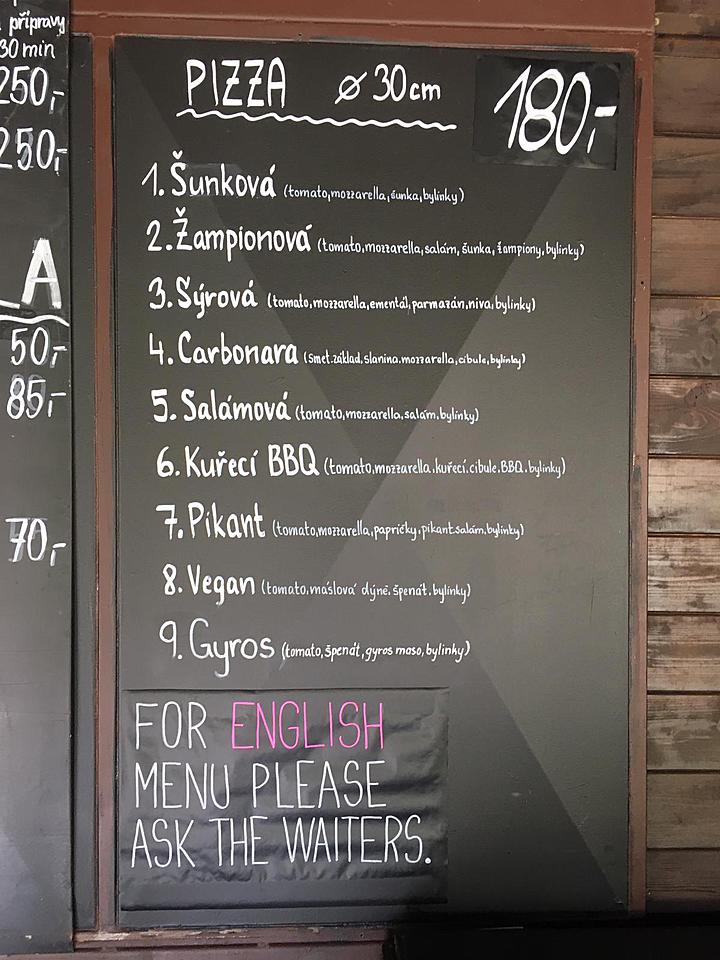 přípravy
30 min
250,-
250,-
A
50,-
85,-
70,-
PIZZA ⌀ 30cm 180,-
1. Šunková (tomato,mozzarella,šunka,bylinky)
2. Žampionová (tomato,mozzarella,salám,šunka,žampiony,bylinky)
3. Sýrová (tomato,mozzarella,ementál,parmazán,niva,bylinky)
4. Carbonara (smet.základ,slanina.mozzarella,cibule,bylinky)
5. Salámová (tomato,mozzarella.salám.bylinky)
6. Kuřecí BBQ (tomato,mozzarella.kuřecí.cibule.BBQ.bylinky)
7. Pikant (tomato,mozzarella,papričky,pikant.salám.bylinky)
8. Vegan (tomato,máslová dýně.špenát.bylinky)
9. Gyros (tomato,špenát,gyros maso,bylinky)
FOR ENGLISH
MENU PLEASE
ASK THE WAITERS.